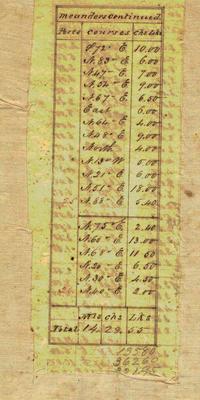 meanders Continued.
Posts Courses Chs Lks
S 72 - E 10.00
N. 83 - E 6.00
N. 47 - E 7.00
N. 54 - E 9.00
N. 67 - E 6.50
East 6.00
N. 64 - E 4.00
N. 48 - E 9.00
North 4.00
N. 13 - W 5.00
N. 21 - E 6.00
N. 51 - E 18.00
N. 68 - E 5.40
N. 75 - E 2.40
N. 60 - E 13.00
N. 68 - E 11.50
N. 20 - E 6.50
N. 30 - E 4.50
N. 40 - E 2.00
Mls Chs Lks
Total 14. 29. 55